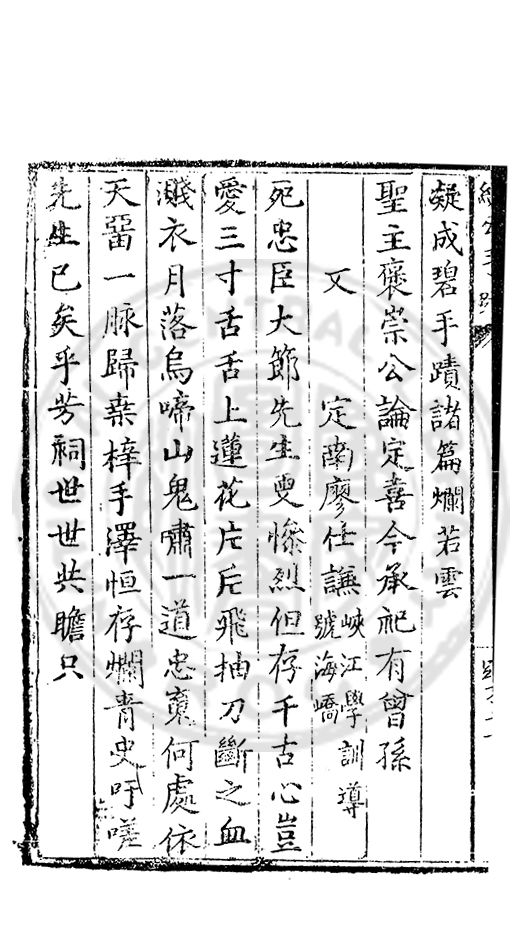 凝成碧手蹟諸篇爛若雲
聖主褒崇公論定喜今承祀有曾孫
又 定南廖任謙 峽江學訓導
號海嶠
死忠臣大節先生更慘烈但存千古心豈
愛三寸舌舌上蓮花片片飛抽刀斷之血
濺衣月落烏啼山鬼嘯一道忠䰟何處依
天留一脉歸桒梓手澤恒存爛青史吁嗟
先生已矣乎芳祠世世共瞻只